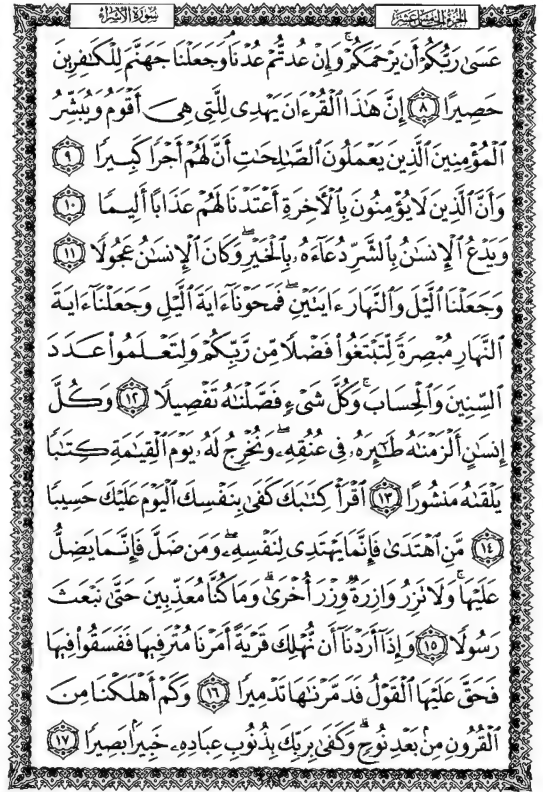 سورة الإسراء
الجزء الخامس عشر
عَسَىٰ رَبُّكُمْ أَن يَرْحَمَكُمْ ۚ وَإِنْ عُدتُّمْ عُدْنَا ۘ وَجَعَلْنَا جَهَنَّمَ لِلْكَـٰفِرِينَ
حَصِيرًا ﴿٨﴾ إِنَّ هَـٰذَا ٱلْقُرْءَانَ يَهْدِى لِلَّتِى هِىَ أَقْوَمُ وَيُبَشِّرُ
ٱلْمُؤْمِنِينَ ٱلَّذِينَ يَعْمَلُونَ ٱلصَّـٰلِحَـٰتِ أَنَّ لَهُمْ أَجْرًا كَبِيرًا ﴿٩﴾
وَأَنَّ ٱلَّذِينَ لَا يُؤْمِنُونَ بِٱلْـَٔاخِرَةِ أَعْتَدْنَا لَهُمْ عَذَابًا أَلِيمًا ﴿١٠﴾
وَيَدْعُ ٱلْإِنسَـٰنُ بِٱلشَّرِّ دُعَآءَهُۥ بِٱلْخَيْرِ ۖ وَكَانَ ٱلْإِنسَـٰنُ عَجُولًا ﴿١١﴾
وَجَعَلْنَا ٱلَّيْلَ وَٱلنَّهَارَ ءَايَتَيْنِ ۖ فَمَحَوْنَآ ءَايَةَ ٱلَّيْلِ وَجَعَلْنَآ ءَايَةَ
ٱلنَّهَارِ مُبْصِرَةً لِّتَبْتَغُوا۟ فَضْلًا مِّن رَّبِّكُمْ وَلِتَعْلَمُوا۟ عَدَدَ
ٱلسِّنِينَ وَٱلْحِسَابَ ۚ وَكُلَّ شَىْءٍ فَصَّلْنَـٰهُ تَفْصِيلًا ﴿١٢﴾ وَكُلَّ
إِنسَـٰنٍ أَلْزَمْنَـٰهُ طَـٰٓئِرَهُۥ فِى عُنُقِهِۦ ۖ وَنُخْرِجُ لَهُۥ يَوْمَ ٱلْقِيَـٰمَةِ كِتَـٰبًا
يَلْقَىٰهُ مَنشُورًا ﴿١٣﴾ ٱقْرَأْ كِتَـٰبَكَ كَفَىٰ بِنَفْسِكَ ٱلْيَوْمَ عَلَيْكَ حَسِيبًا
﴿١٤﴾ مَّنِ ٱهْتَدَىٰ فَإِنَّمَا يَهْتَدِى لِنَفْسِهِۦ ۖ وَمَن ضَلَّ فَإِنَّمَا يَضِلُّ
عَلَيْهَا ۚ وَلَا تَزِرُ وَازِرَةٌ وِزْرَ أُخْرَىٰ ۗ وَمَا كُنَّا مُعَذِّبِينَ حَتَّىٰ نَبْعَثَ
رَسُولًا ﴿١٥﴾ وَإِذَآ أَرَدْنَآ أَن نُّهْلِكَ قَرْيَةً أَمَرْنَا مُتْرَفِيهَا فَفَسَقُوا۟ فِيهَا
فَحَقَّ عَلَيْهَا ٱلْقَوْلُ فَدَمَّرْنَـٰهَا تَدْمِيرًا ﴿١٦﴾ وَكَمْ أَهْلَكْنَا مِنَ
ٱلْقُرُونِ مِنۢ بَعْدِ نُوحٍ ۗ وَكَفَىٰ بِرَبِّكَ بِذُنُوبِ عِبَادِهِۦ خَبِيرًۢا بَصِيرًا ﴿١٧﴾